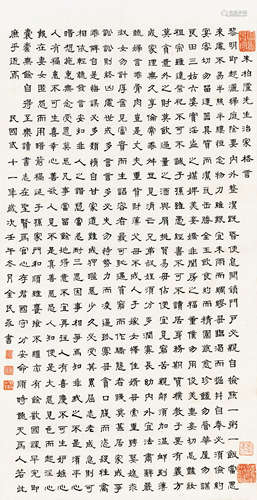 朱柏廬先生治家格言
黎明即起灑掃庭除要內外整潔既昏便息關鎖門戶必親自檢點一粥一飯當思
來處不易半絲半縷恆念物力維艱宜未雨而綢繆毋臨渴而掘井自奉必須儉約
宴客切勿留連器具質而潔瓦缶勝金玉飲食約而精園蔬愈珍饈勿營華屋勿謀
良田三姑六婆實淫盜之媒婢美妾嬌非閨房之福奴僕勿用俊美妻妾切忌艷妝
祖宗雖遠祭祀不可不誠子孫雖愚經書不可不讀居身務期質樸教子要有義方
莫貪意外之財莫飲過量之酒與肩挑貿易毋佔便宜見貧苦親鄰須加溫卹刻薄
成家理無久享倫常乖舛立見消亡兄弟叔姪須分多潤寡長幼內外宜法肅辭嚴
聽婦言乖骨肉豈是丈夫重貲財薄父母不成人子嫁女擇佳婿毋索重聘娶媳求
淑女勿計厚奩見富貴而生諂容者最可恥遇貧窮而作驕態者賤莫甚居家戒爭訟
乖僻自是悔誤必多頹惰自甘家道難成狎暱惡少久必受其累屈志老成急則可
相依輕聽發言安知非人之譖愬當忍耐三思因事相爭焉知非我之不是須平心
暗想施惠無念受恩莫忘凡事當留餘地得意不宜再往人有喜慶不可生妒忌心
人有禍患不可生喜幸心善欲人見不是真善惡恐人知便是大惡見色而起淫心
報在妻女匿怨而用暗箭禍延子孫家門和順雖饔飧不繼亦有餘歡國課早完即
囊橐無餘自得至樂讀書志在聖賢為官心存君國守分安命順時聽天為人若此
庶乎近焉 民國三十一年歲次壬午冬月金民丞書